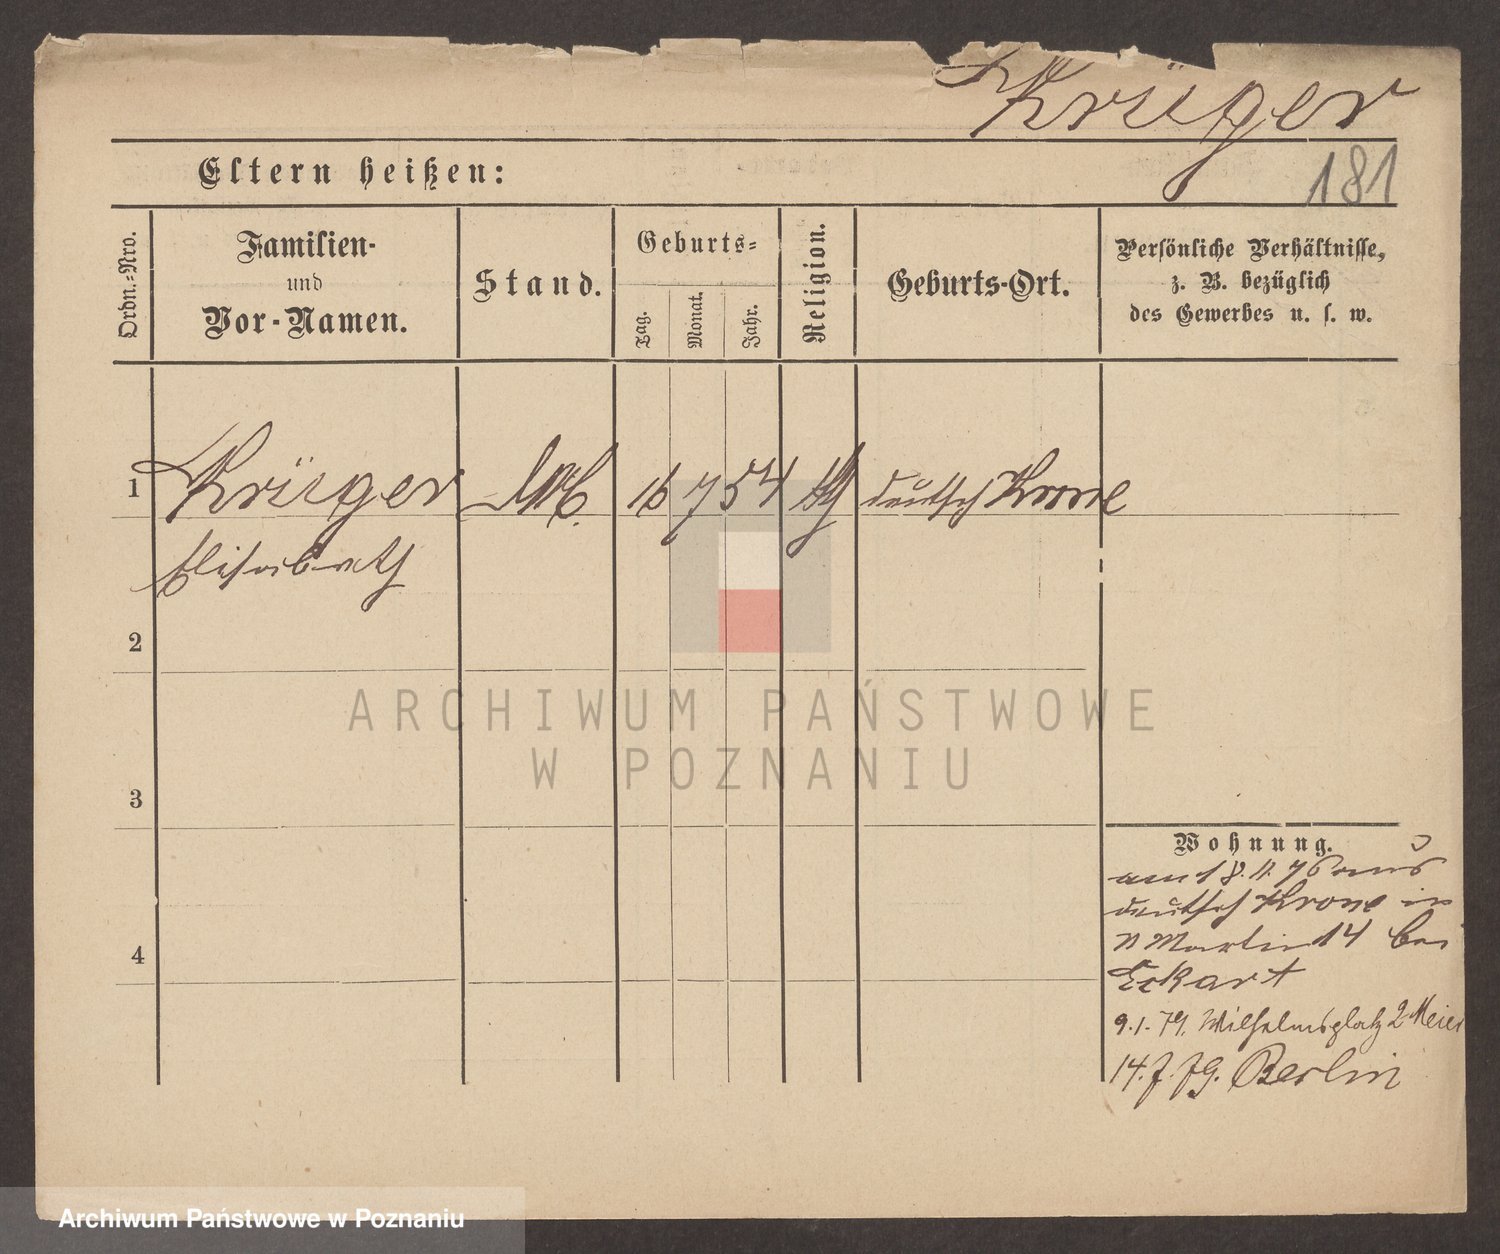 Krüger
181
Eltern heißen:
Ordn.-Nro.
Familien-
und
Vor-Namen.
Stand.
Geburts-
Tag.
Monat.
Jahr.
Religion.
Geburts-Ort.
Persönliche Verhältnisse,
z. B. bezüglich
des Gewerbes u. s. w.
1 Krüger 16 7 54 deutsch Krone
Elisabeth
2
3
4
Wohnung.
am 18.11.76 aus
deutsch Krone in
Martin 14 bei
Eckart
9.1.79. Wilhelmsplatz 2 Meier
14.7.79. Berlin
ARCHIWUM PAŃSTWOWE
W POZNANIU
Archiwum Państwowe w Poznaniu